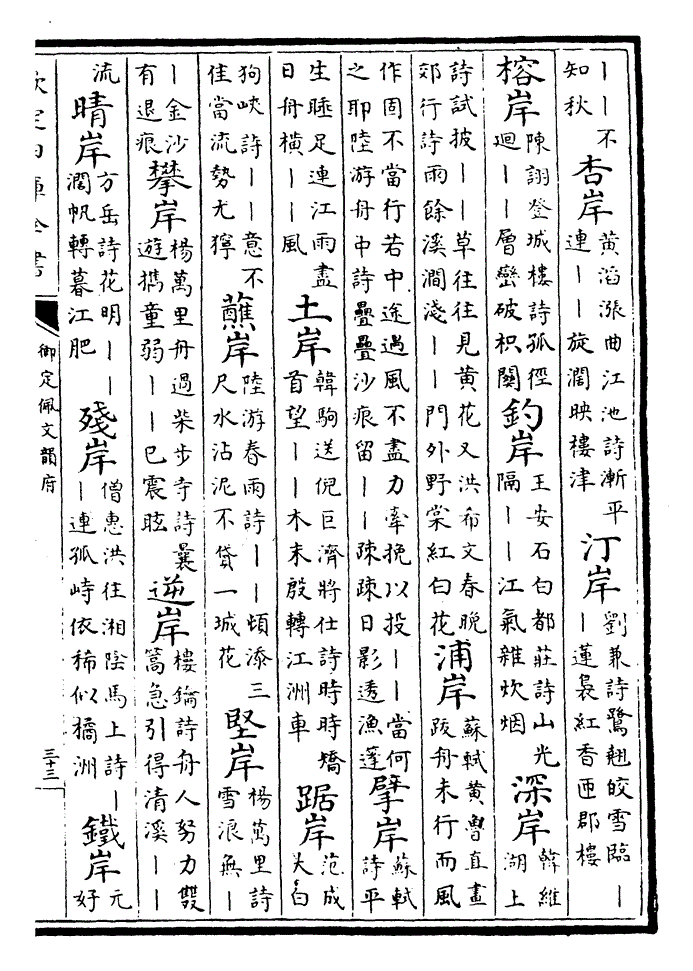 ｜｜不知秋杏岸黄滔漲曲江池詩漸平連｜｜旋濶映樓津汀岸劉兼詩鷺翹皎雪臨｜｜蓮裊紅香匝郡樓
榕岸陳詡登城樓詩孤徑廻｜｜層巒破枳闗釣岸王安石白都莊詩山光隔｜｜江氣雜炊烟深岸韓維湖上
詩試披｜｜草往往見黄花又洪希文春晚郊行詩雨餘溪澗淺｜｜門外野棠紅白花浦岸蘇軾黄魯直畫跋舟未行而風
作固不當行若中途遇風不盡力牽挽以投｜｜當何之耶陸游舟中詩疊疊沙痕留｜｜疎疎日影透漁蓬擘岸蘇軾詩平
生睡足連江雨盡日舟横｜｜風土岸韓駒送倪巨濟將仕詩時時矯首望｜｜木末殷轉江洲車踞岸范成大白
狗峽詩｜｜意不佳當流勢尤獰蘸岸陸游春雨詩｜｜頓添三尺水沾泥不貸一城花堅岸楊萬里詩雪浪無｜
｜金沙有退痕攀岸楊萬里舟過柴步寺詩曩遊攜童弱｜｜已震眩逆岸樓鑰詩舟人努力雙篙急引得清溪｜｜
流晴岸方岳詩花明｜｜濶帆轉暮江肥殘岸僧惠洪往湘陰馬上詩｜｜連孤峙依稀似橘洲鐵岸元好
欽定四庫全書
御定佩文韻府
三十三